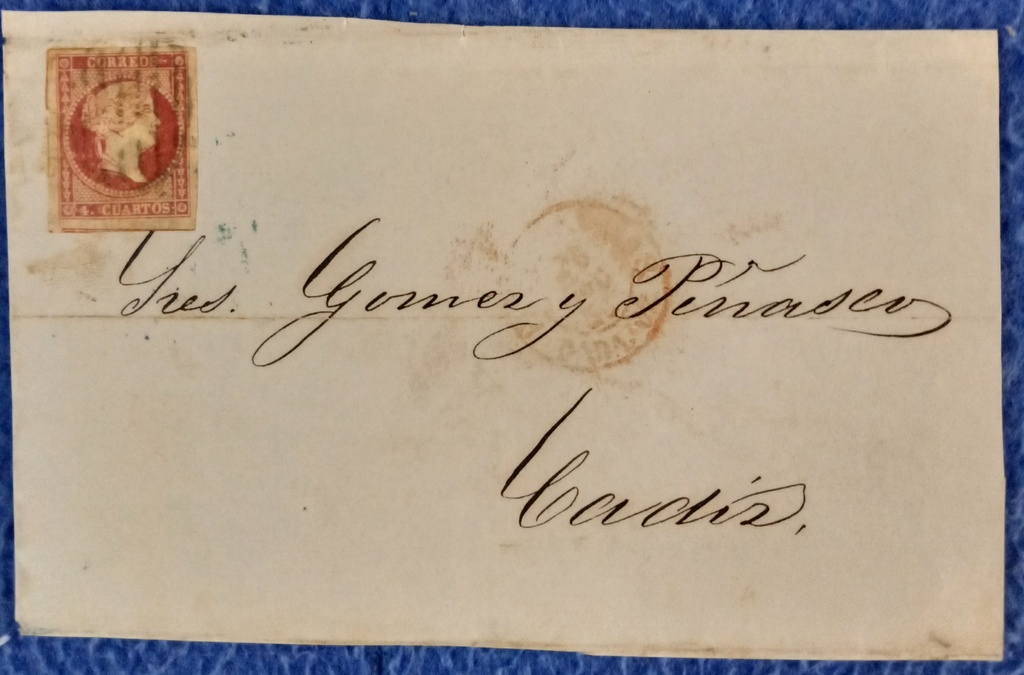 CORREOS
4. CUARTOS
Sres. Gomez y Peñasco
Cadiz,